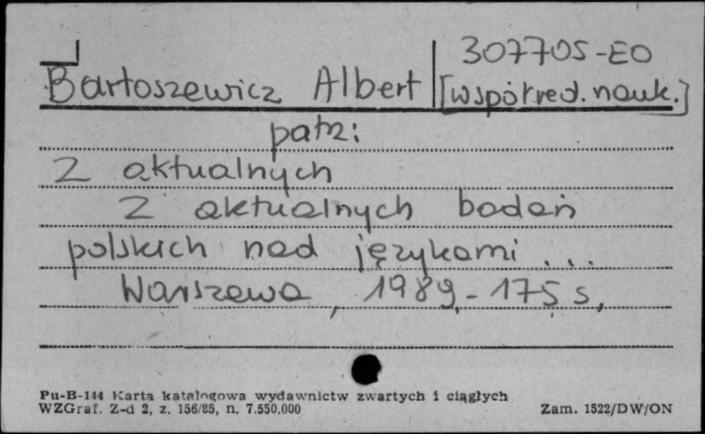 307705-EO
Bartoszewicz Albert [współred. nauk.]
patrz:
Z aktualnych
Z aktualnych badań
polskich nad językami ...
Warszawa, 1989.- 175 s,
Pu-B-144 Karta katalogowa wydawnictw zwartych i ciągłych
WZGraf. Z-d 2, z. 156/85, n. 7.550.000 Zam. 1522/DW/ON